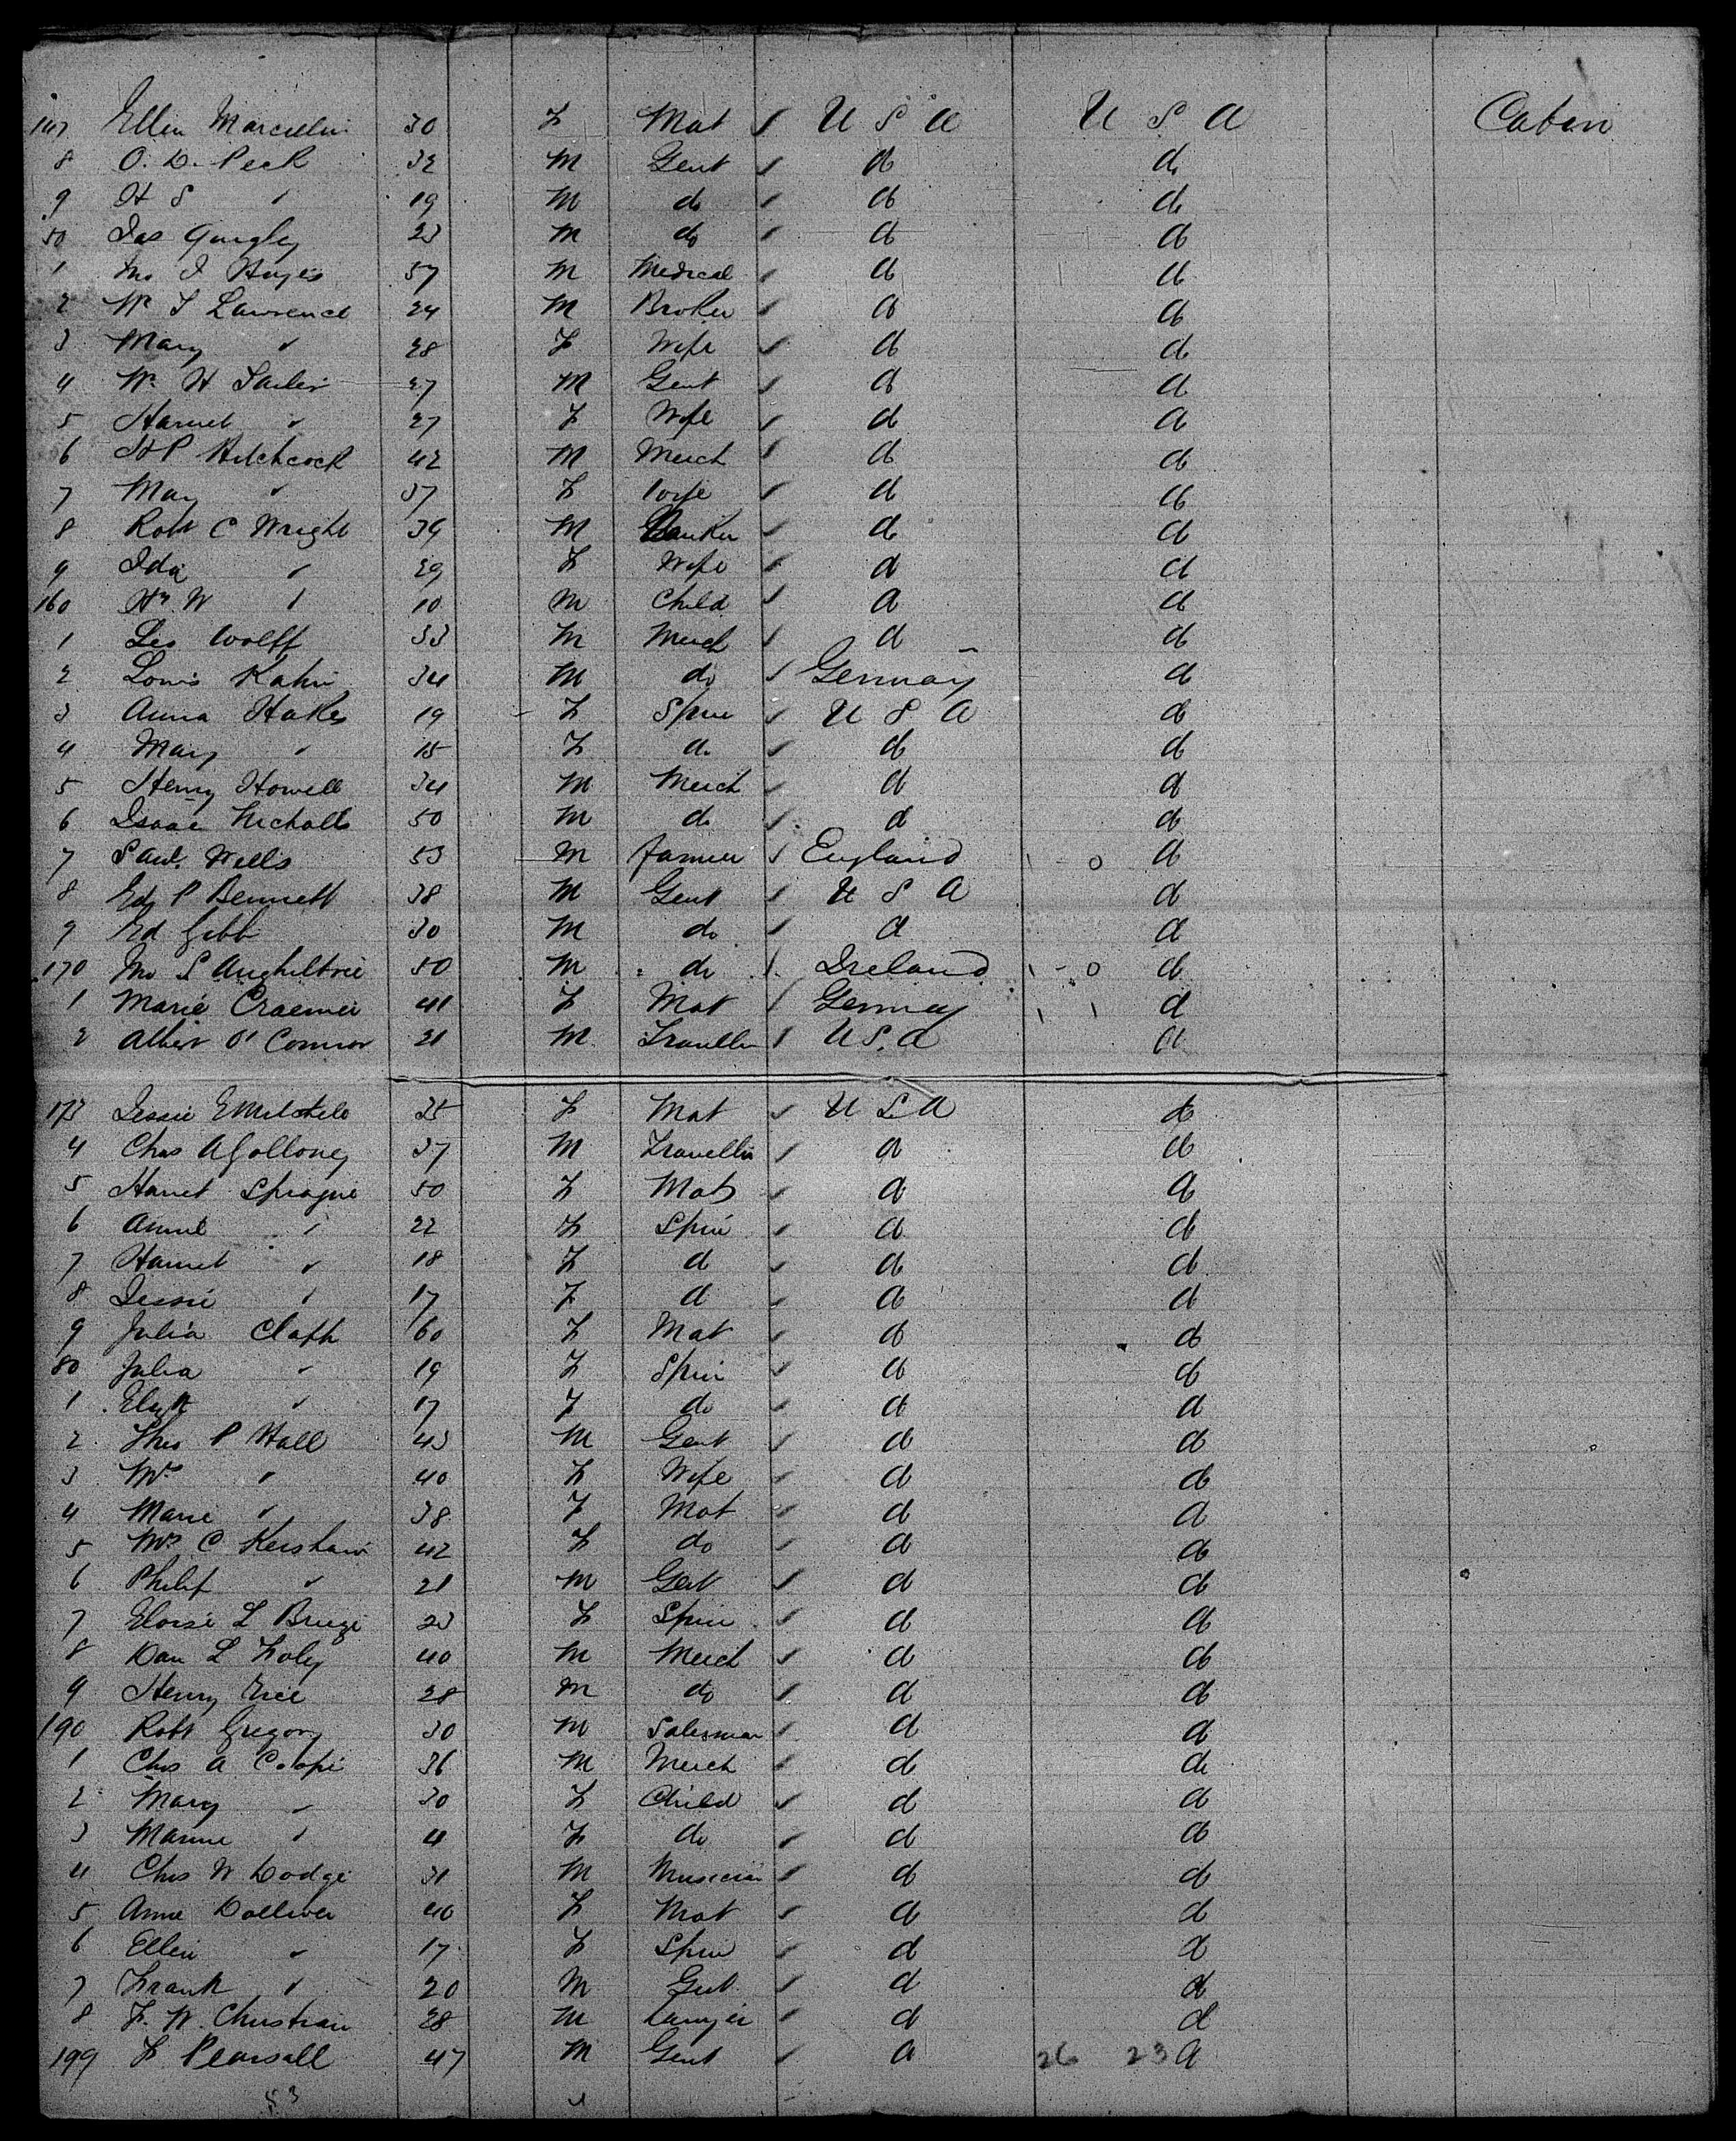 147 Ellen Marcellin 30 F Mat U S A U S A Cabin
8 O. D. Peck 32 M Gent do do
9 H S " 19 M do do do
50 Jas Quigley 23 M do do do
1 Jno J Hayes 57 M Medical do do
2 Wm T Lawrence 24 M Broker do do
3 Mary " 28 F Wife do do
4 Wm H 27 M Gent do do
5 Harriet " 27 F Wife do do
6 H P Hitchcock 42 M Merch do do
7 May " 37 F Wife do do
8 Robt C Wright 39 M Banker do do
9 Ida " 29 F Wife do do
160 Hy W " 10 M Child do do
1 Leo Wolff 33 M Merch do do
2 Louis Kahn 34 M do Germany do
3 Anna Hakes 19 F Spin U S A do
4 Mary " 15 F do do do
5 Henry Howell 34 M Merch do do
6 Isaac Nicholls 50 M do do do
7 Saml. Wells 53 M farmer England 0 do
8 Ed P Bennett 38 M Gent U S A do
9 Ed Gibb 30 M do do do
170 Jno S Aughiltrie 50 M do Ireland 0 do
1 Marie Craemer 41 F Mat Germany do
2 Albert O'Connor 21 M Traveller U S. A do
173 Jessie E Mitchele 35 F Mat U S A do
4 Chas A Golloney 37 M Traveller do do
5 Harriet Sprague 50 F Mat do do
6 Annie " 22 F Spin do do
7 Harriet " 18 F do do do
8 Jessie " 17 F do do do
9 Julia Claph 60 F Mat do do
80 Julia " 19 F Spin do do
1 " 17 F do do do
2 Thos P Hall 43 M Gent do do
3 Mrs " 40 F Wife do do
4 Marie " 38 F Mat do do
5 Mrs C Kershaw 42 F do do do
6 Philip " 21 M Gent do do
7 Eloise L 23 F Spin do do
8 Dan L Foley 40 M Merch do do
9 Henry Rice 28 M do do do
190 Robt Gregory 30 M Salesman do do
1 Chas A 36 M Merch do do
2 Mary " 30 F Child do do
3 Mamie " 4 F do do do
4 Chas W Dodge 31 M Musician do do
5 Anne Dolliver 40 F Mat do do
6 Ellen " 17 F Spin do do
7 Frank " 20 M Gent do do
8 F. W. Christian 28 M Lawyer do do
199 F Pearsall 47 M Gent do 26 23 do
53